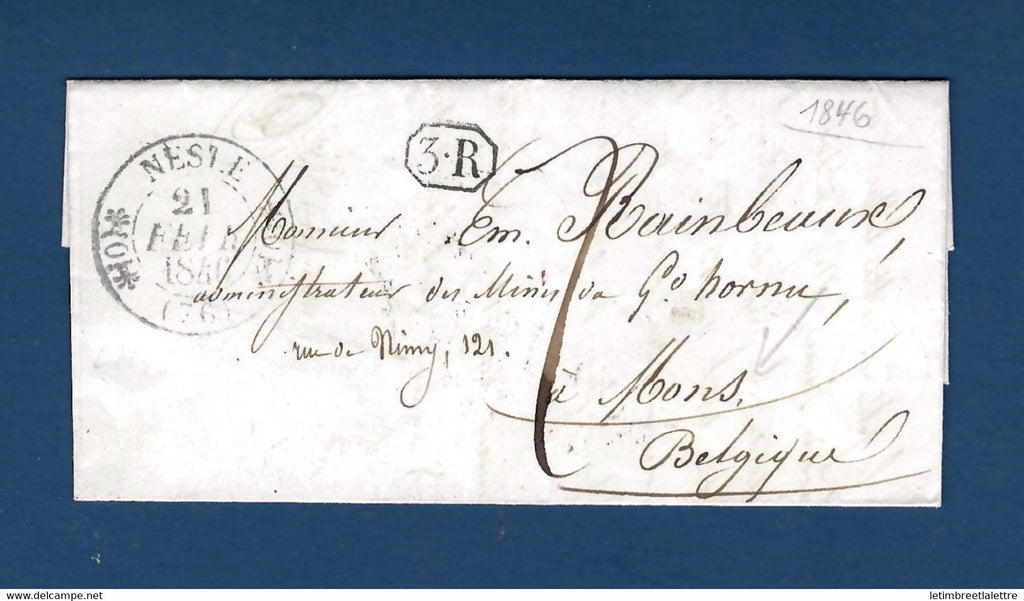 1846
3·R
NESLE
21
FEVR
1846
(76)
Monsieur Em. Rainbeaux,
administrateur des Mines du Gd hornu,
rue de Nimy, 121.
à Mons,
Belgique
delcampe.net
letimbreetlalettre